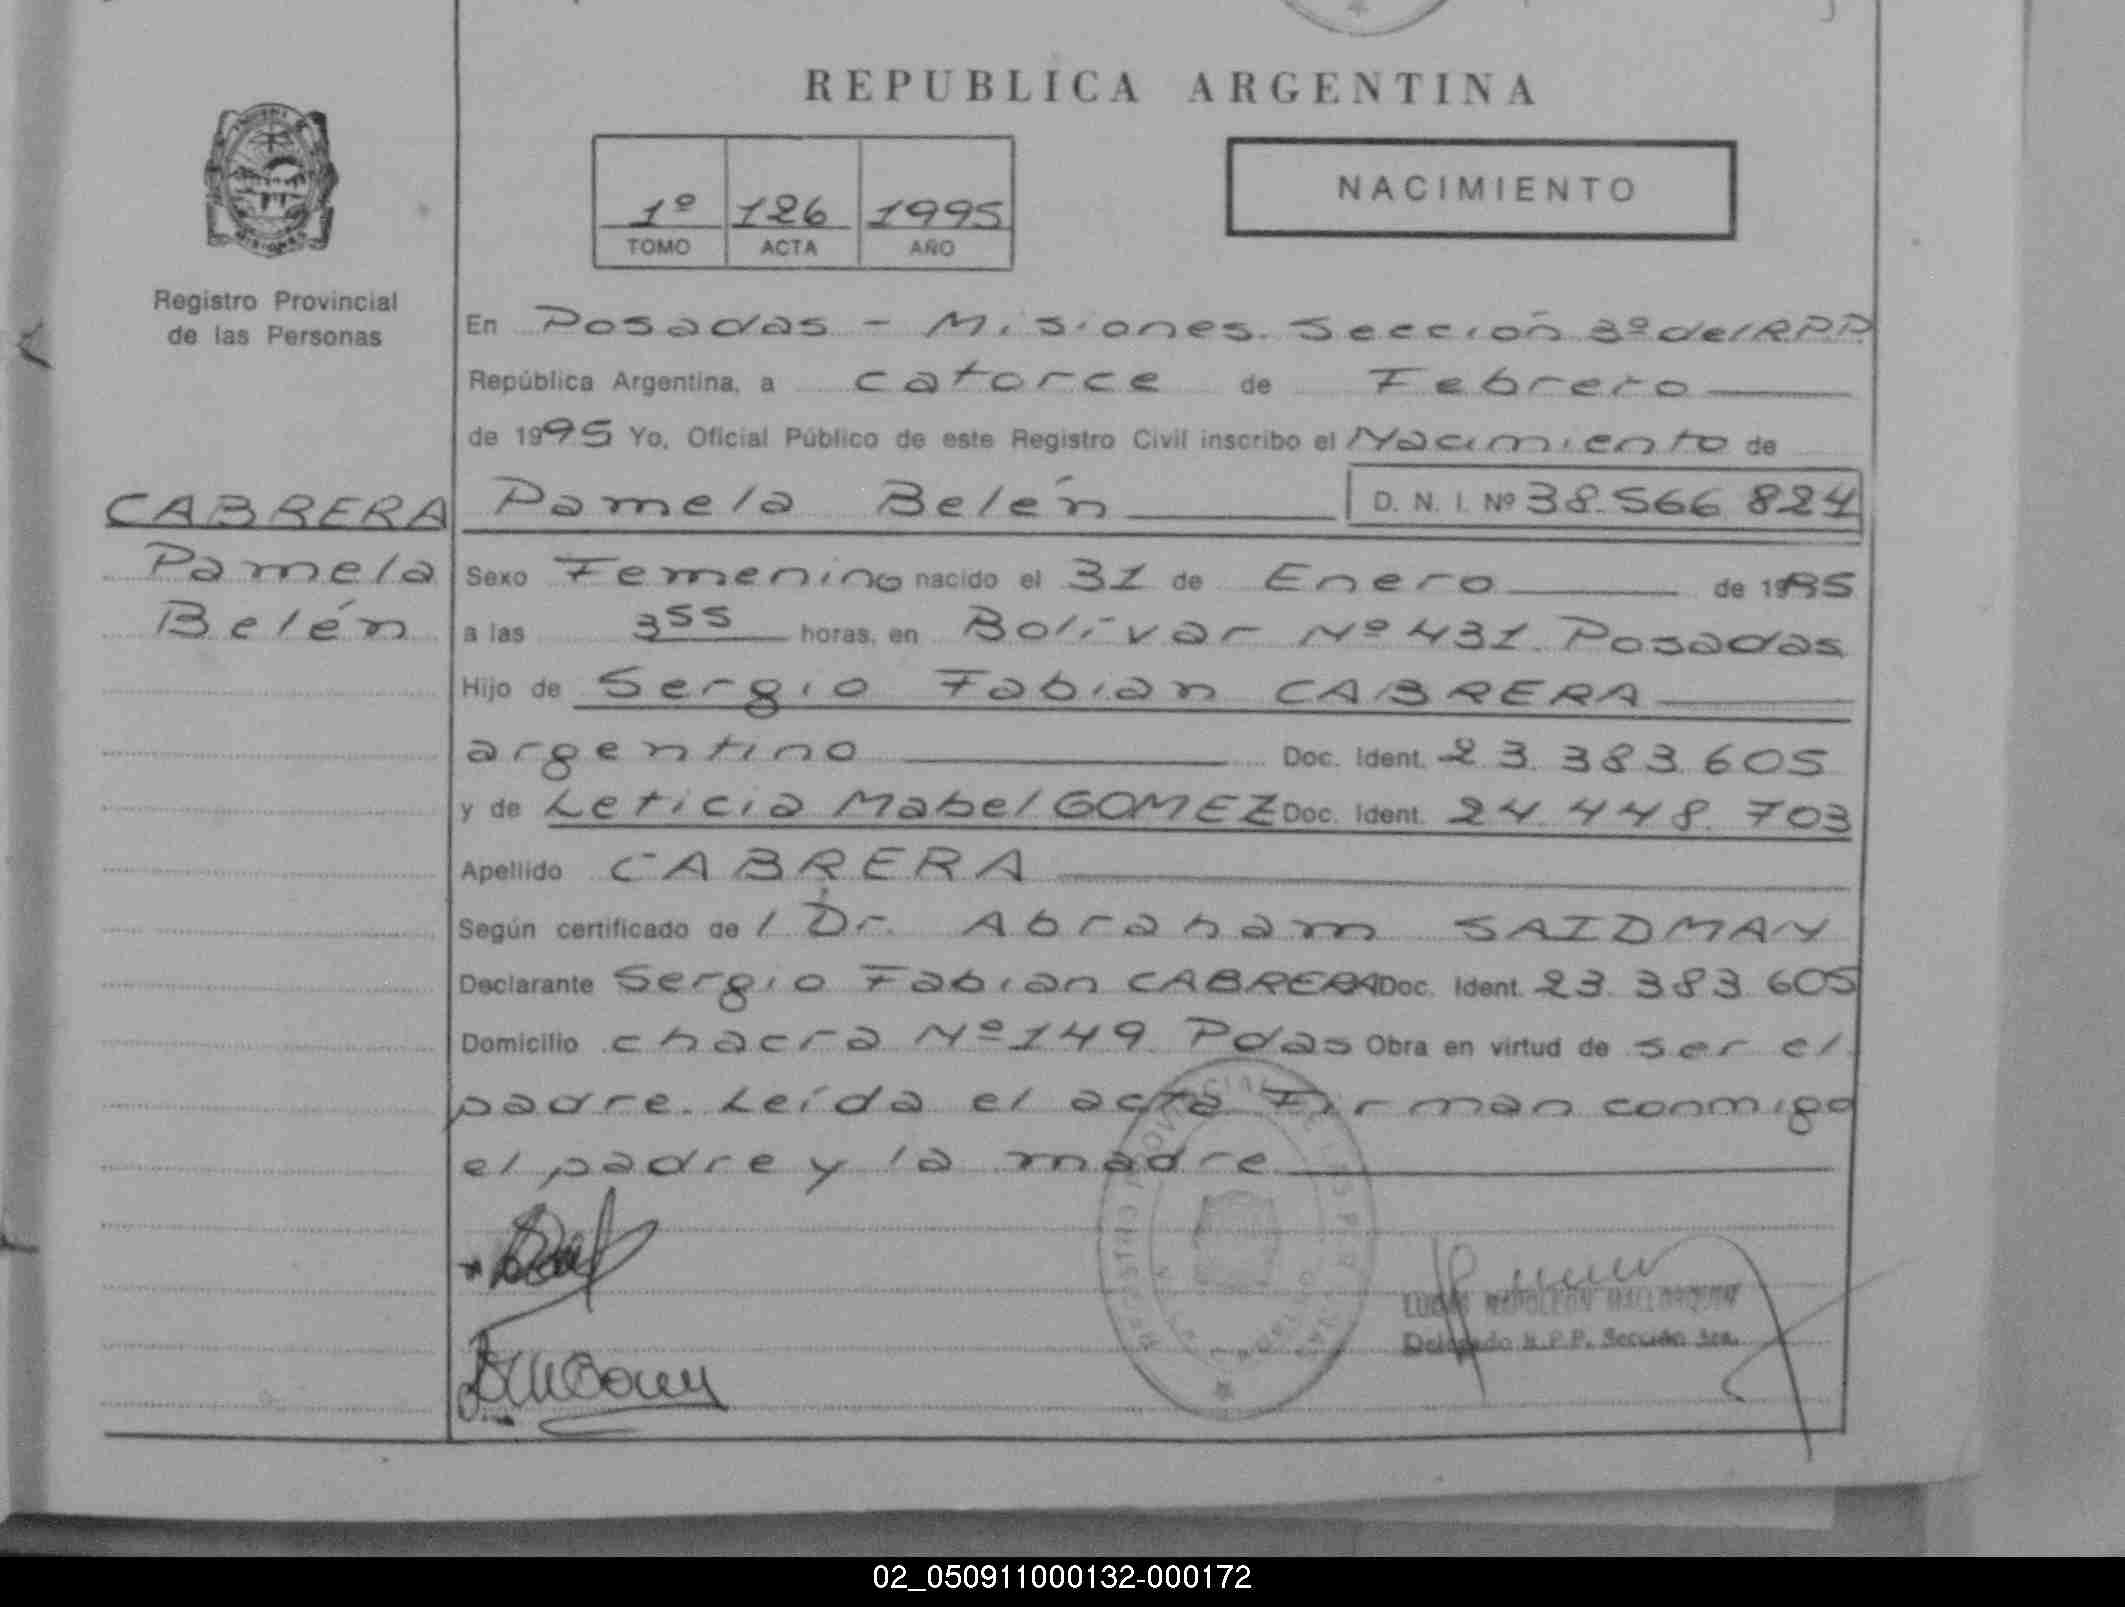 REPUBLICA ARGENTINA
1º 126 1995
TOMO ACTA AÑO
NACIMIENTO
Registro Provincial
de las Personas
CABRERA
Pamela
Belén
En Posadas - Misiones. Sección 3º del R.P.P.
República Argentina, a catorce de Febrero
de 1995 Yo, Oficial Público de este Registro Civil inscribo el Nacimiento de
Pamela Belén D. N. I. Nº 38.566.824
Sexo Femenino nacido el 31 de Enero de 1995
a las 3 55 horas, en Bolívar Nº 431. Posadas
Hijo de Sergio Fabian CABRERA
argentino Doc. Ident. 23.383.605
y de Leticia Mabel GOMEZ Doc. Ident. 24.448.703
Apellido CABRERA
Según certificado de l Dr. Abraham SAIDMAN
Declarante Sergio Fabian CABRERA Doc. Ident. 23.383.605
Domicilio chacra Nº 149. Pdas Obra en virtud de ser el
padre. Leída el acta Firman conmigo
el padre y la madre
REGISTRO PROVINCIAL DE LAS PERSONAS
Delegado R.P.P. Sección 3ra.
02_050911000132-000172